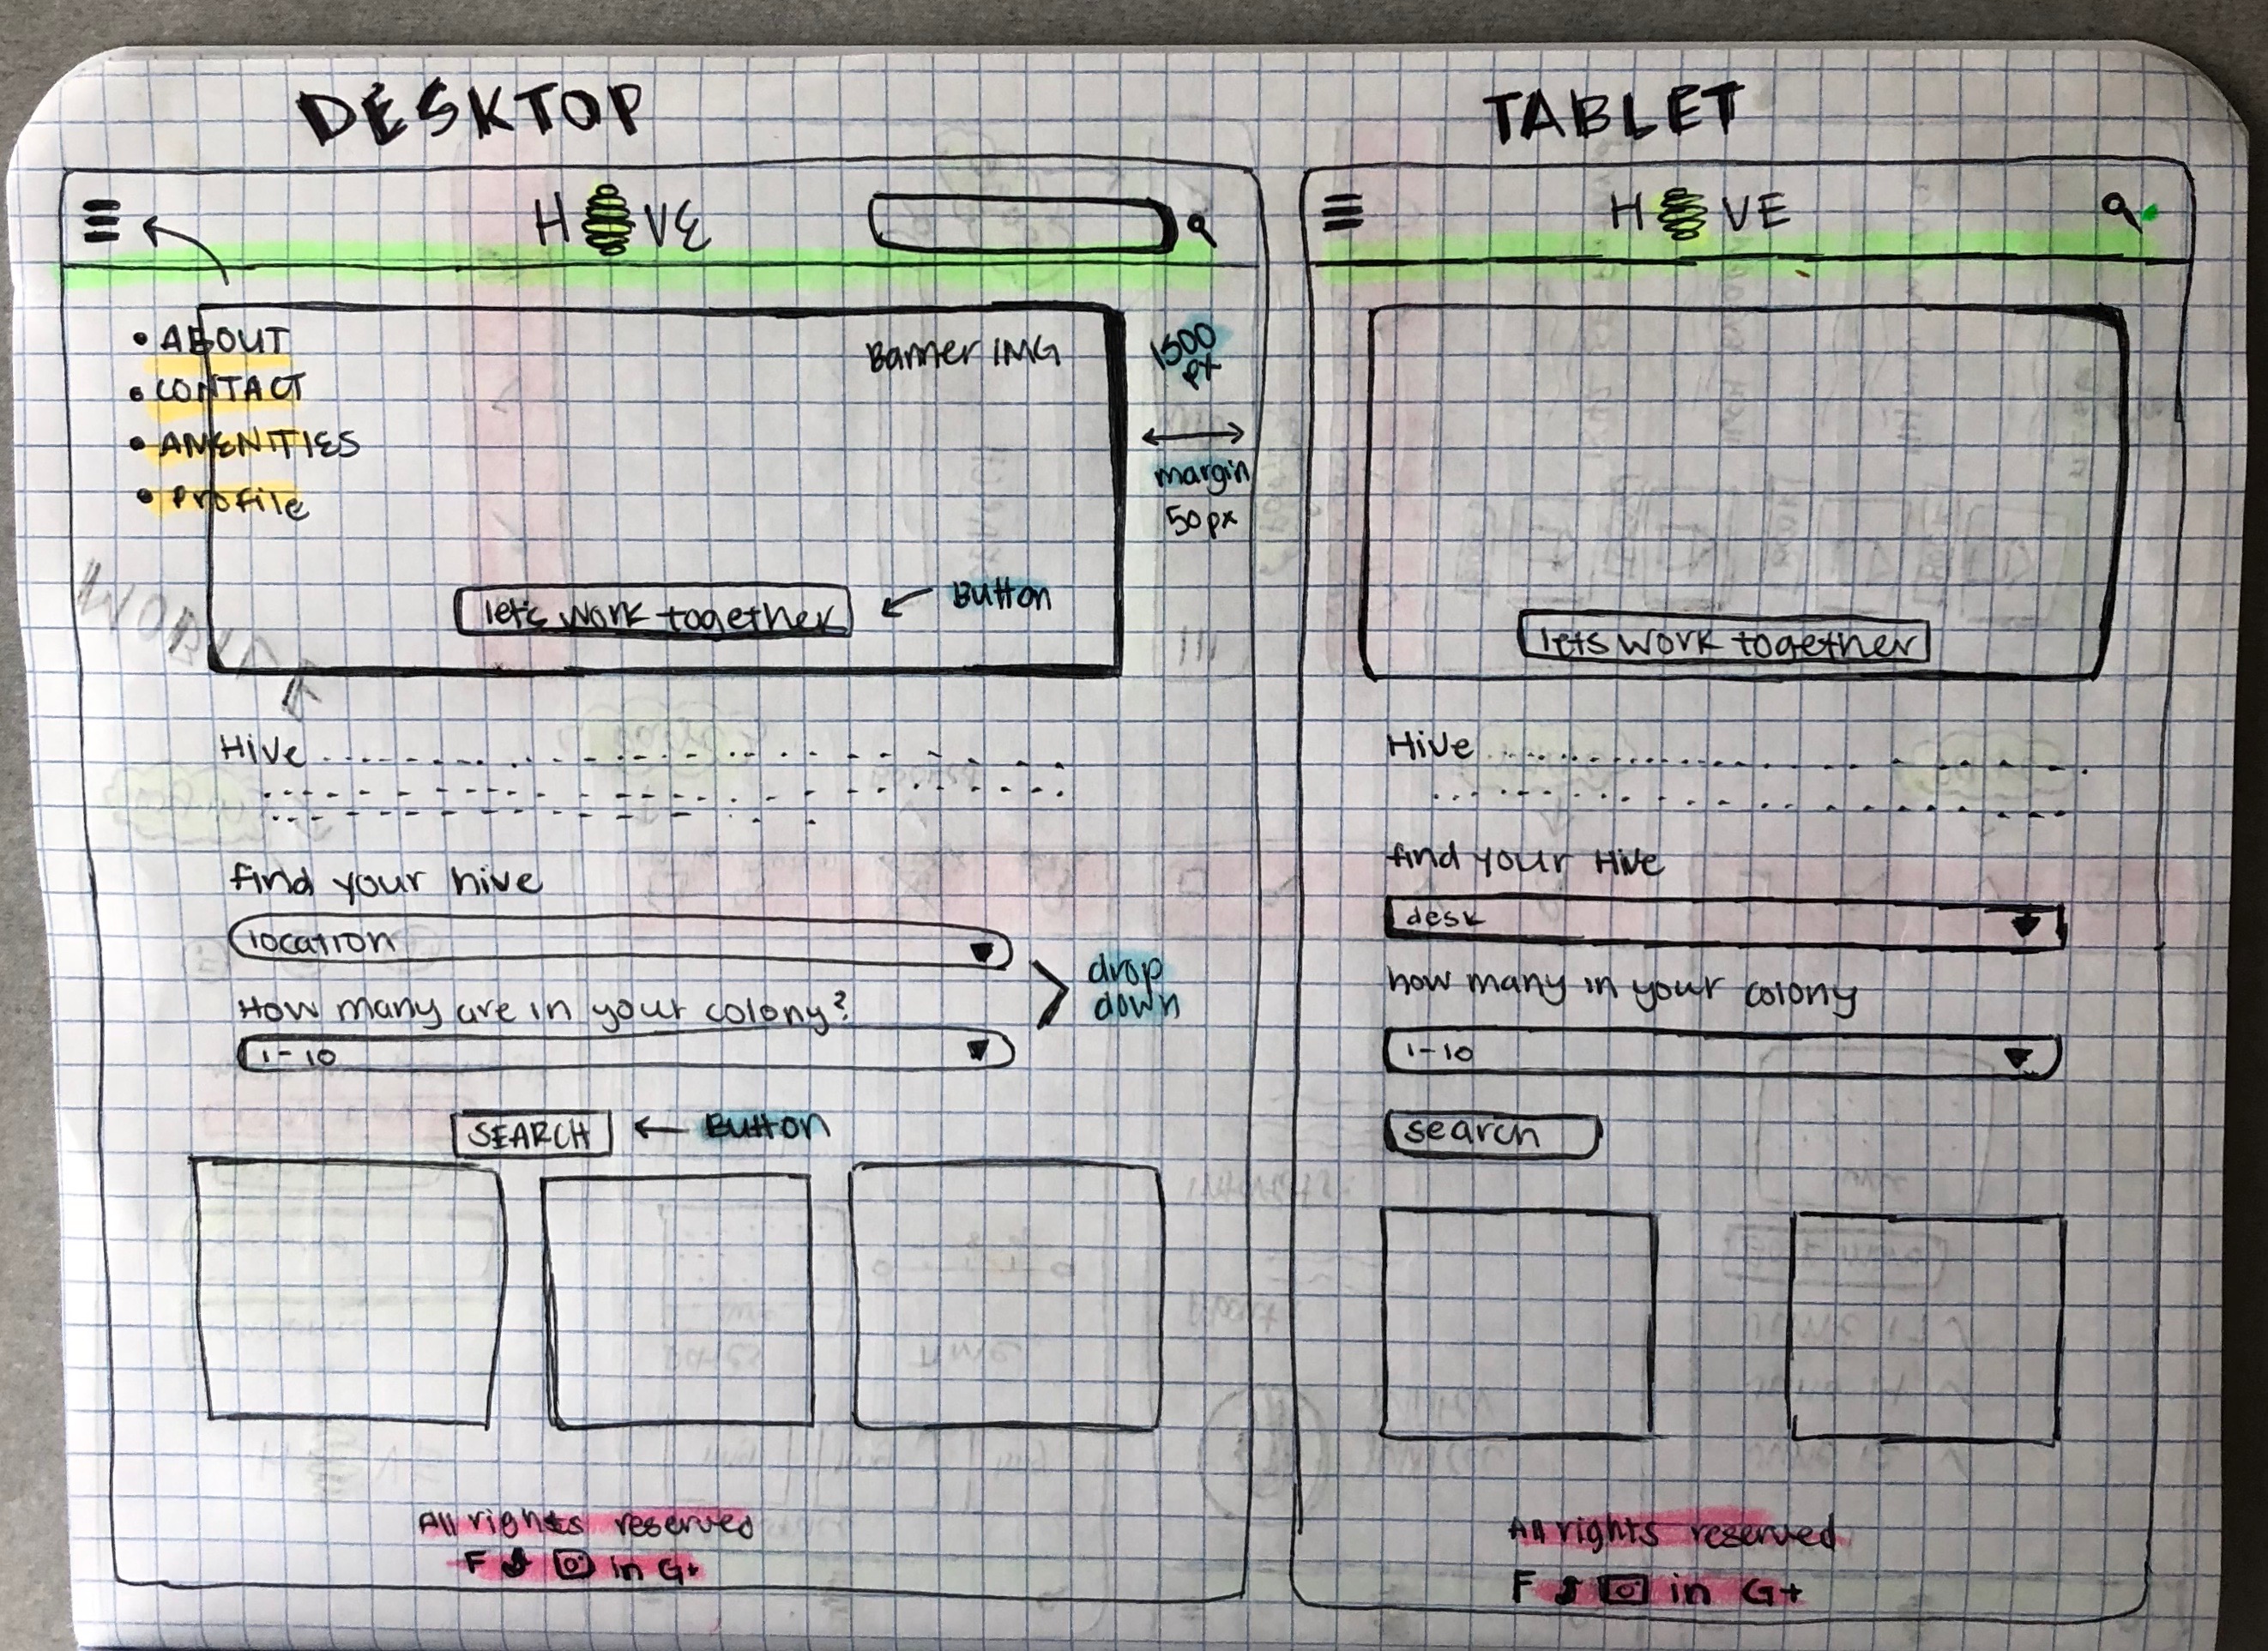 DESKTOP
H VE
• ABOUT
• CONTACT
• AMENITIES
• Profile
Banner IMG
1500
px
margin
50px
let's work together
Button
Hive
find your hive
location
How many are in your colony?
1-10
drop
down
SEARCH
Button
All rights reserved
F in G+
TABLET
H VE
lets work together
Hive
find your Hive
desk
how many in your colony
1-10
search
All rights reserved
F in G+